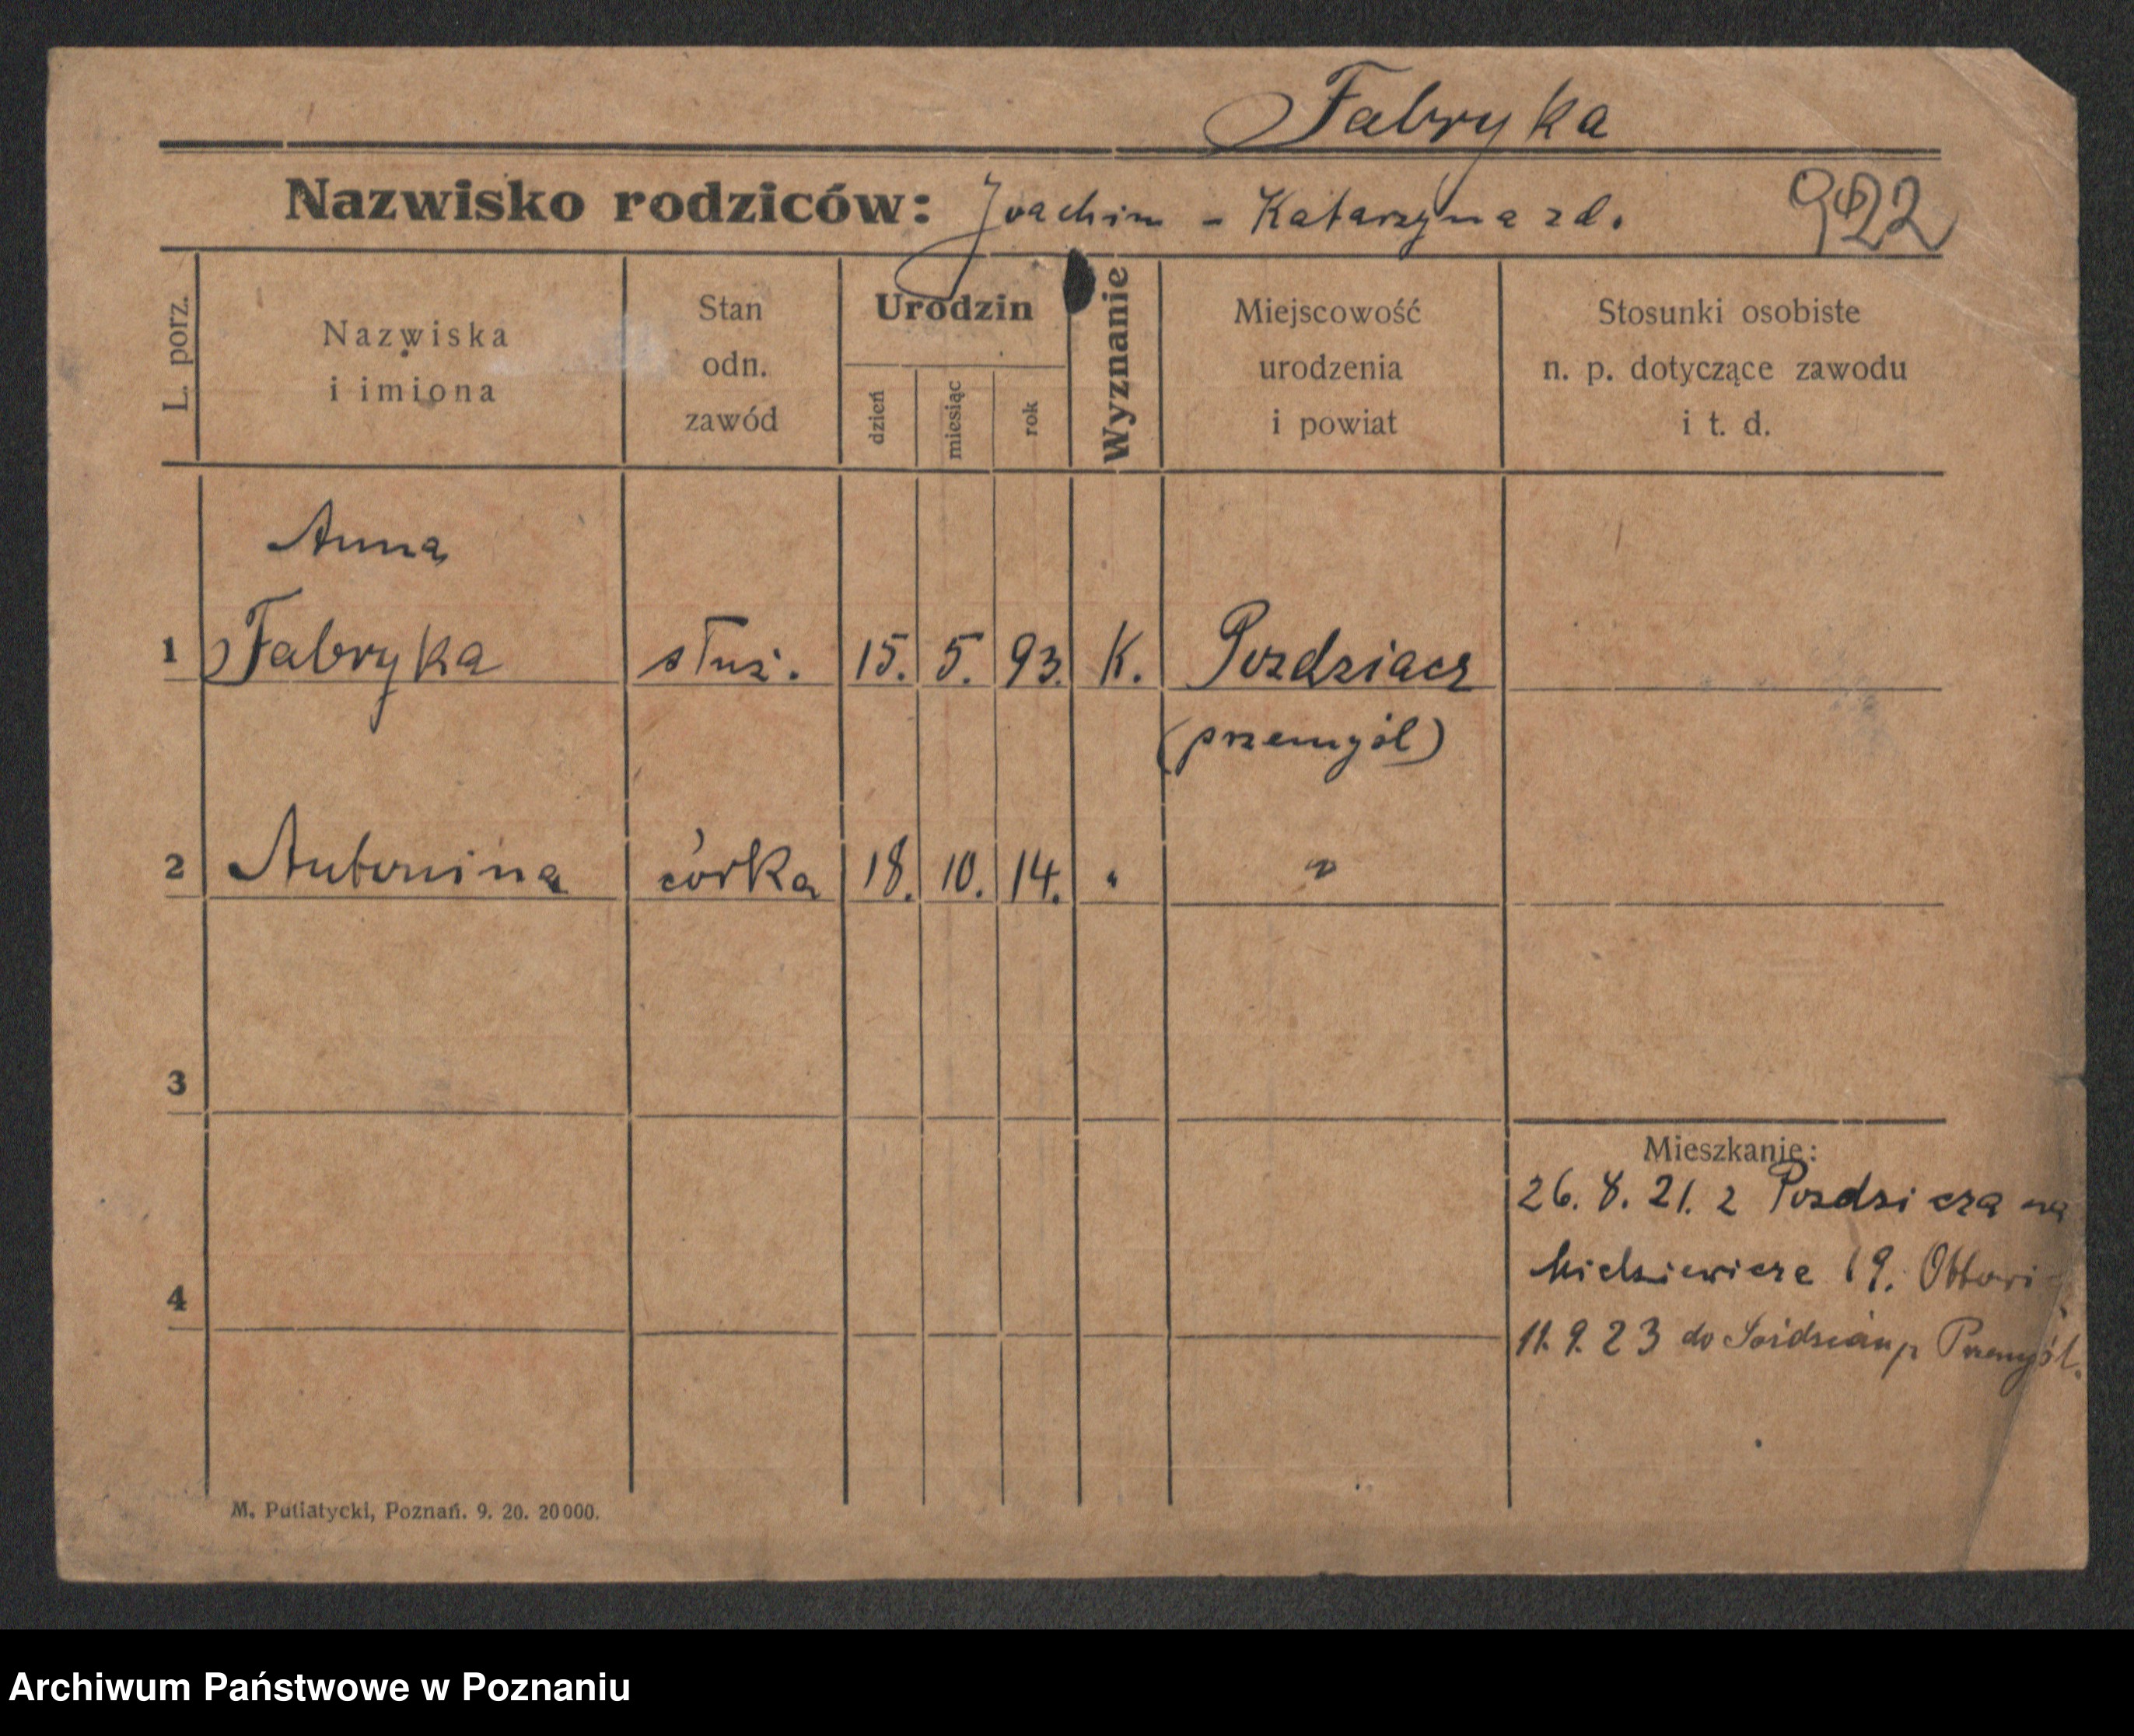 Fabryka
Nazwisko rodziców: Joachim - Katarzyna zd.
922
L. porz.
Nazwiska
i imiona
Stan
odn.
zawód
Urodzin
dzień
miesiąc
rok
Wyznanie
Miejscowość
urodzenia
i powiat
Stosunki osobiste
n. p. dotyczące zawodu
i t. d.
Anna
1 Fabryka służ. 15. 5. 93. K. Pozdziacz
(przemyśl)
2 Antonina córka 18. 10. 14. " "
3
4
Mieszkanie:
26. 8. 21. z na
19.
11. 9. 23 do Przemyśl.
M. Putiatycki, Poznań. 9. 20. 20000.
Archiwum Państwowe w Poznaniu